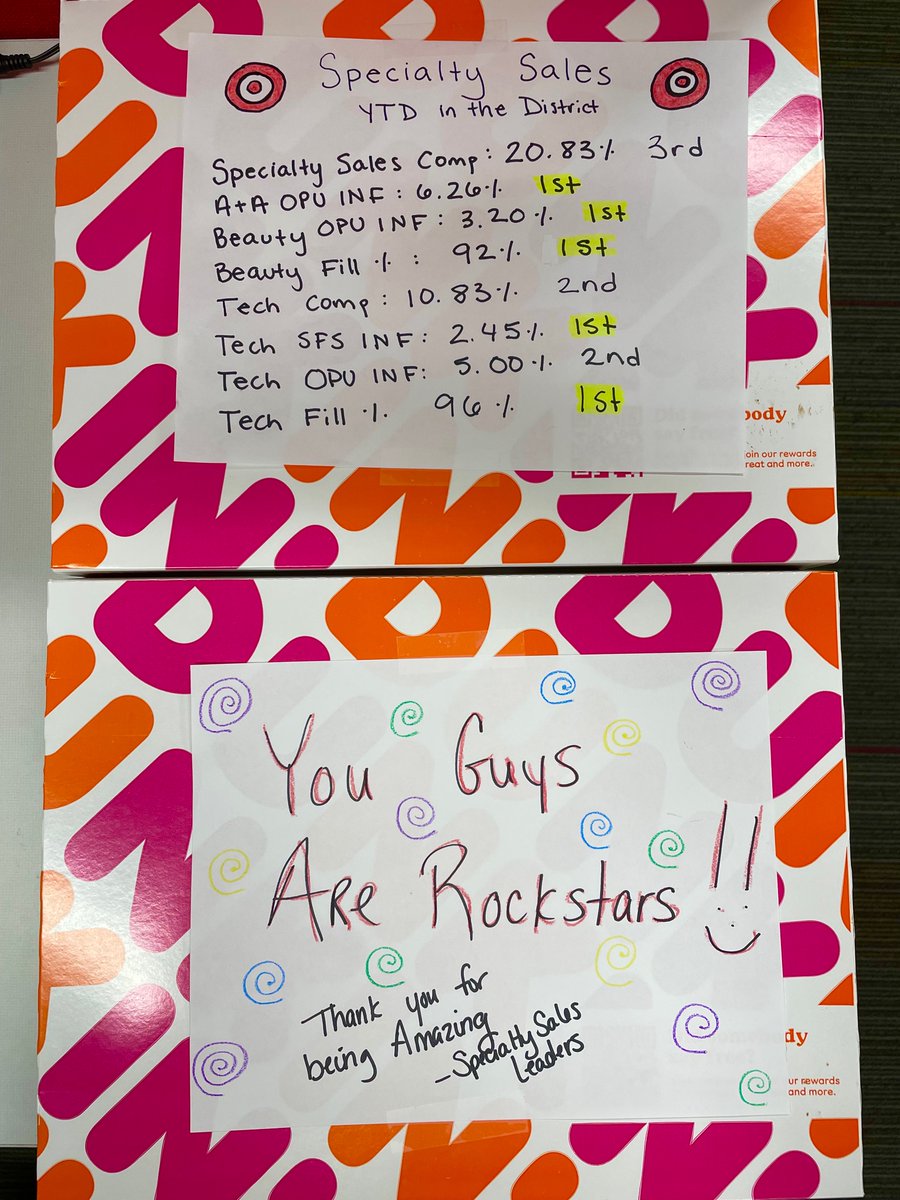 Specialty Sales
YTD in the District
Specialty Sales Comp: 20.83% 3rd
A+A OPU INF: 6.26% 1st
Beauty OPU INF: 3.20% 1st
Beauty Fill %: 92% 1st
Tech Comp: 10.83% 2nd
Tech SFS INF: 2.45% 1st
Tech OPU INF: 5.00% 2nd
Tech Fill % 96% 1st
body
oin our rewards
reat and more.
You Guys
Are Rockstars!!
Thank you for
being Amazing
-Specialty Sales
Leaders
dy
ur rewards
and more.